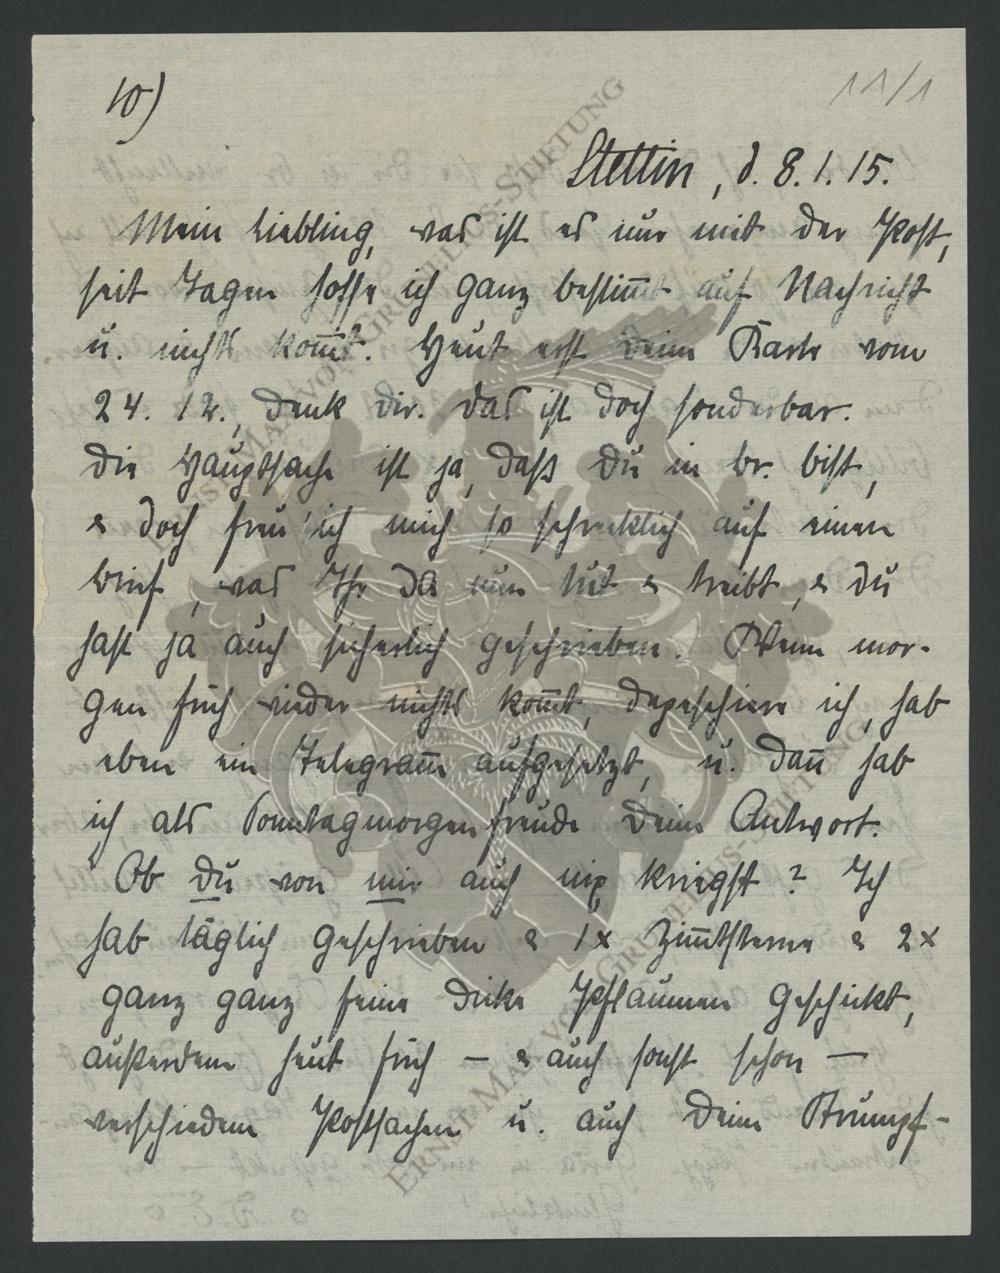 10)
11/1
Stettin, d. 8.1.15.
Mein Liebling, was ist es nur mit der Post,
seit Tagen hoffe ich ganz bestim̅t auf Nachricht
u. nichts kom̅t. Heut erst Deine Karte vom
24. 12., denk dir. Das ist doch sonderbar.
Die Hauptsache ist ja, daß Du in Br. bist,
& doch freu' ich mich so schrecklich auf einen
Brief, was Ihr da nun tut & treibt, & Du
hast ja auch sicherlich geschrieben. Wenn mor-
gen früh wieder nichts kom̅t, depeschiere ich, hab
eben ein Telegram̅ aufgesetzt, u. dan̅ hab
ich als Sonntagmorgenfreude Deine Antwort.
Ob Du von mir auch nix kriegst? Ich
hab täglich geschrieben & 1x Zim̅tsterne & 2x
ganz ganz feine dicke Pflaumen geschickt,
außerdem heut früh – & auch sonst schon –
verschiedene Postsachen u. auch Deine Strumpf-
ERNST-MAX-VON-GRUNELIUS-STIFTUNG
ERNST-MAX-VON-GRUNELIUS-STIFTUNG